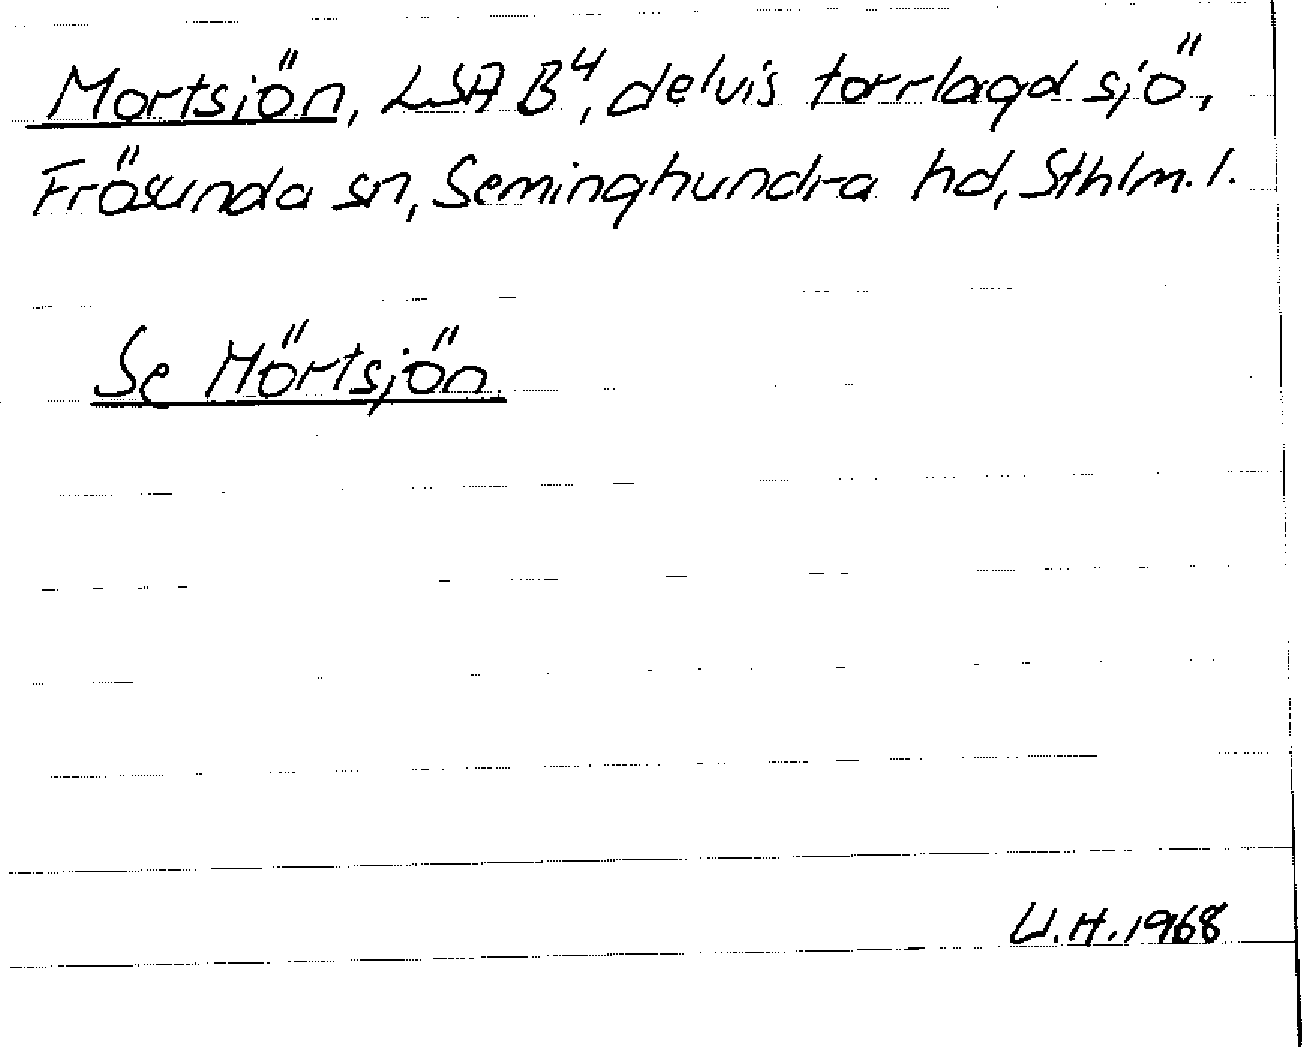 Mortsjön, LSA B⁴, delvis torrlagd sjö,
Frösunda sn, Seminghundra hd, Sthlm. l.
Se Mörtsjön
U.H. 1968